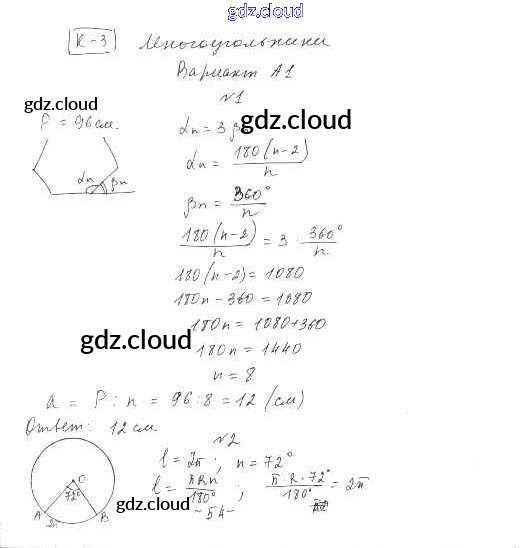 gdz.cloud
К-3 Многоугольники
Вариант А1
№1
gdz.cloud
P = 96 см.
αn = 3 βn
gdz.cloud
αn = 180(n-2)/n
αn βn
βn = 360°/n
180(n-2)/n = 3 · 360°/n
180(n-2) = 1080
180n - 360 = 1080
180n = 1080+360
gdz.cloud
180n = 1440
n = 8
a = P : n = 96:8 = 12 (см)
Ответ: 12 см.
№2
l = 2π ; n = 72°
O
72°
l = πRn/180° ; π·R·72°/180° = 2π
A 2π B
gdz.cloud
-54-